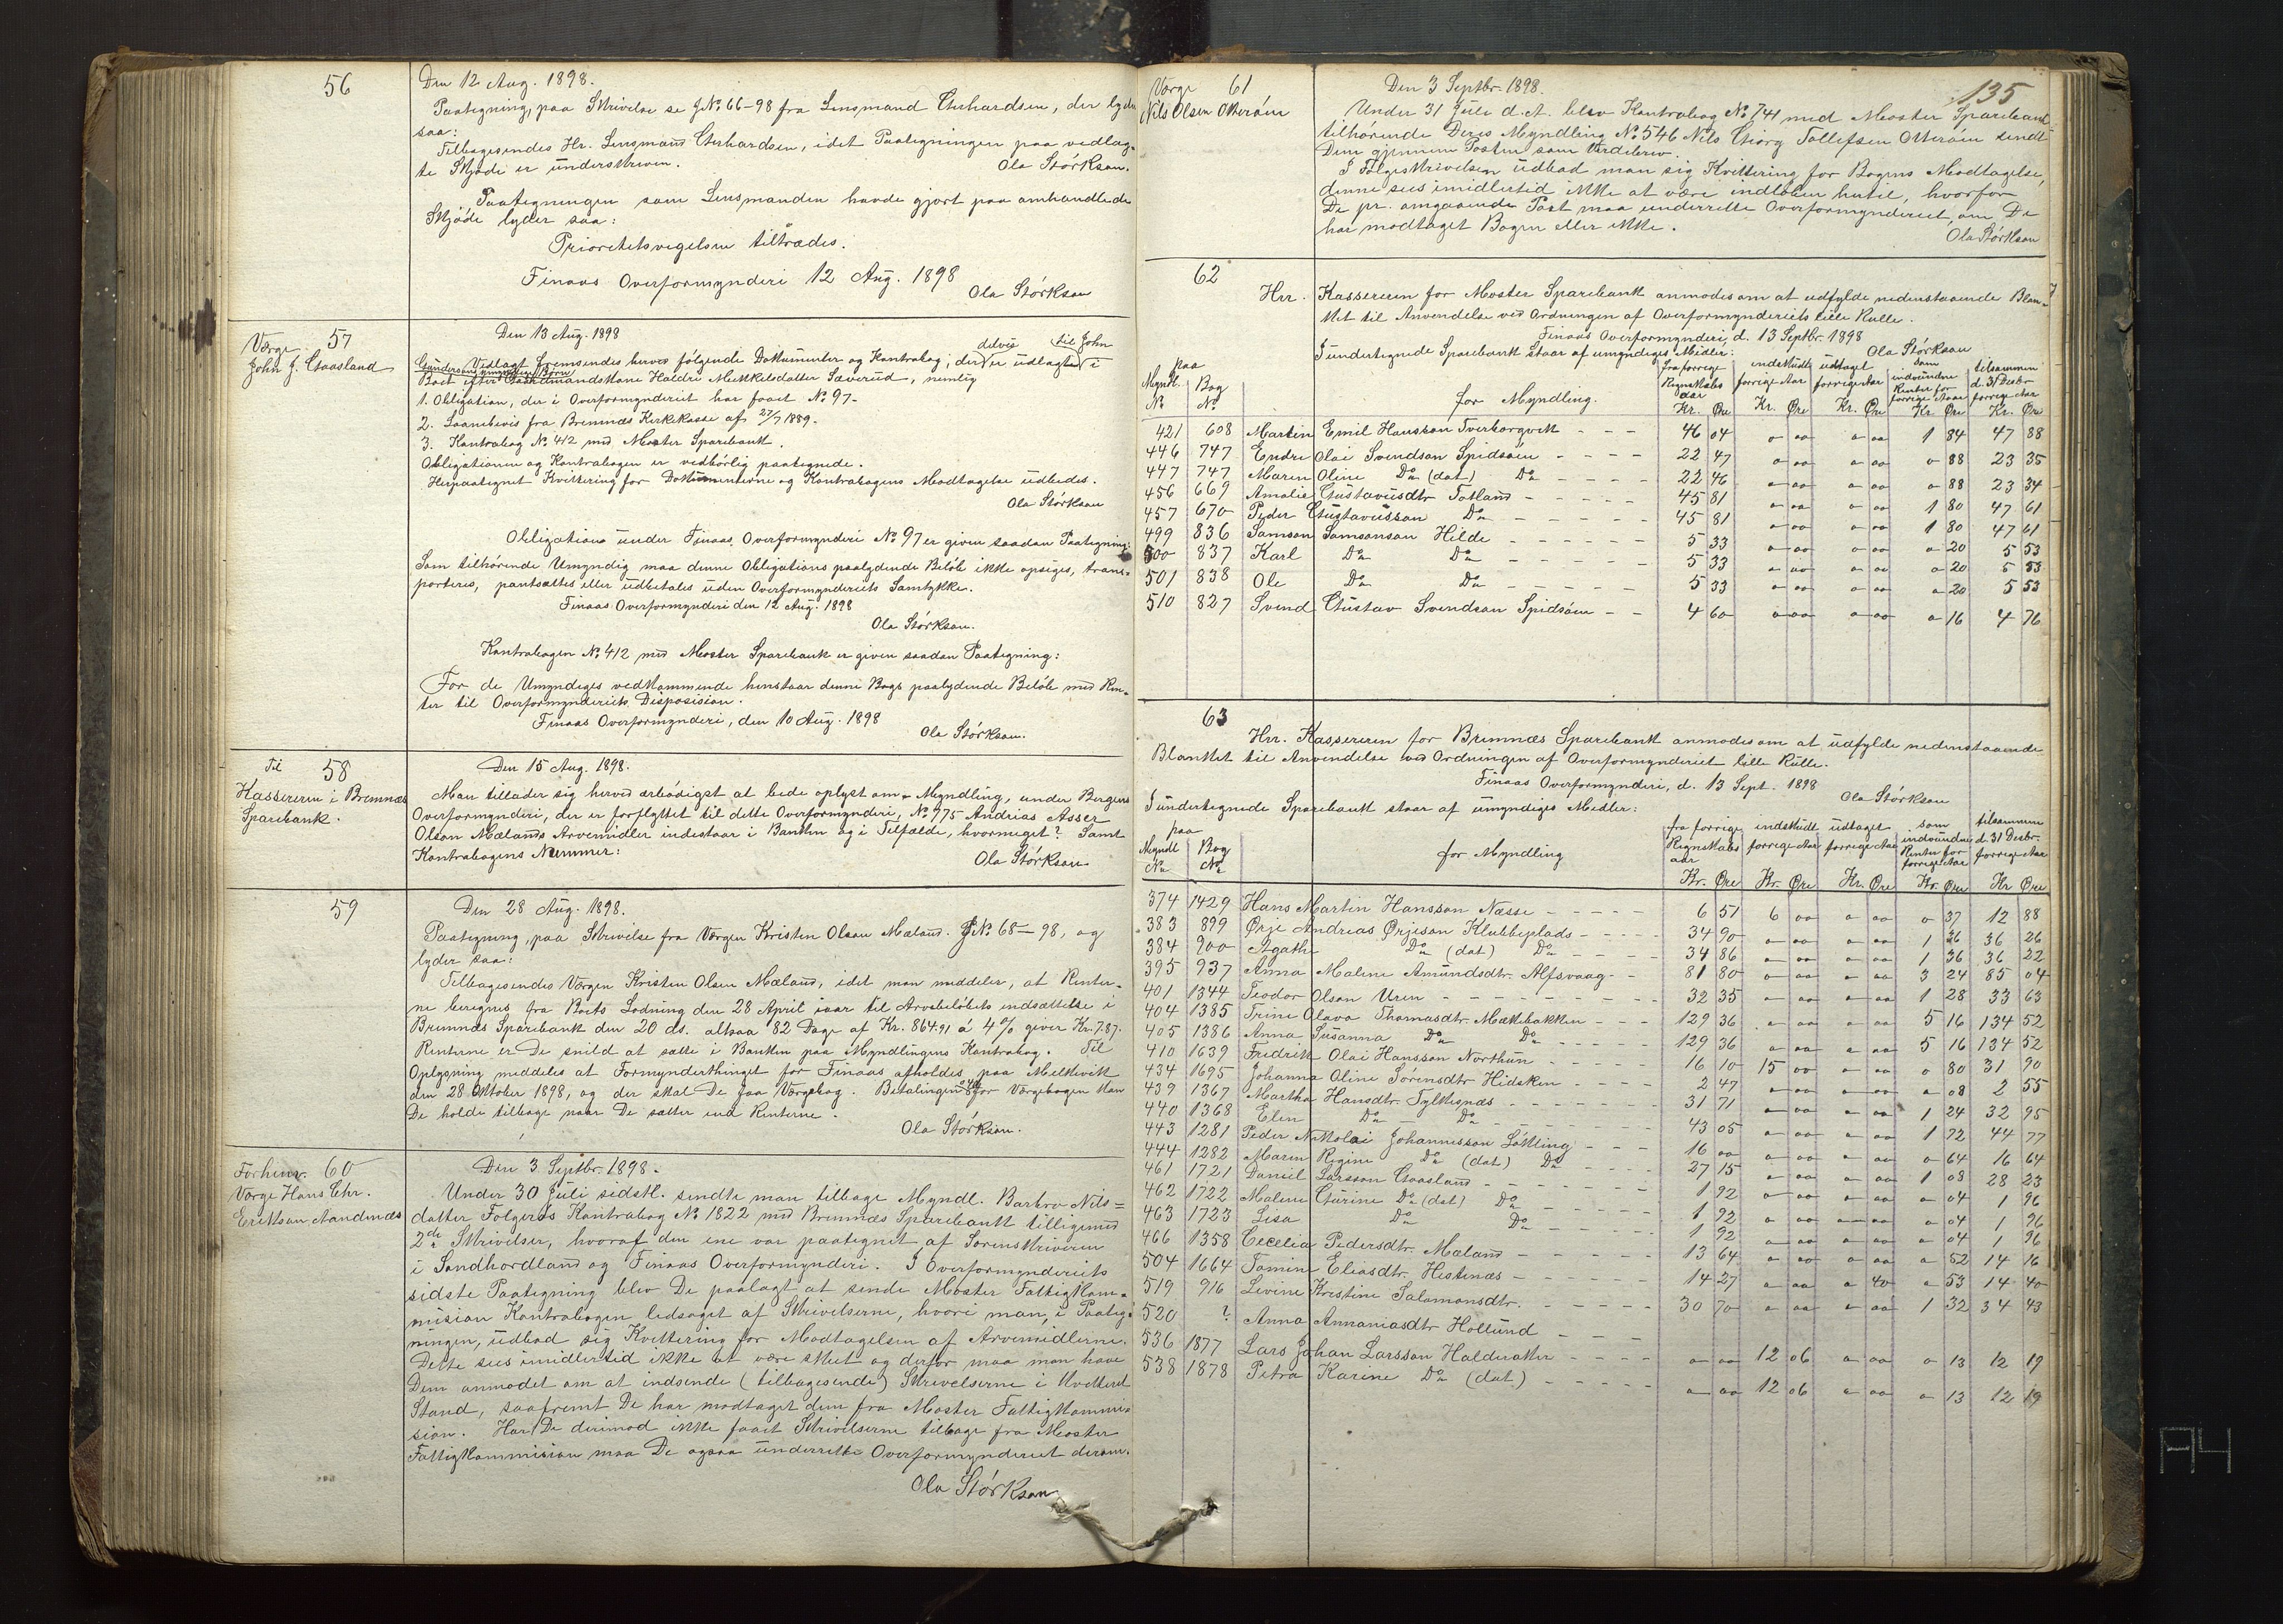 56
Den 12 Aug. 1898.
Paategning, paa Skrivelse se J.No. 66-98 fra Lensmand Gerhardsen, der lyder
saa:
Tilbagesendes Hr. Lensmand Gerhardsen, idet Paategningen paa vedlag-
te Skjøde er underskreven.
Ola Størksen.
Paategningen som Lensmanden havde gjort paa omhandlede
Skjøde lyder saa:
Prioritetsvegelsen tiltrædes.
Finaas Overformynderi 12 Aug. 1898
Ola Størksen
Værge 57
John J. Gaasland
Den 13 Aug. 1898
Vedlagt fremsendes herved følgende Dokumenter og Kontrabog, der delvis er udlagte til John
Gundersens umyndige Børn i
Boet efter Gaardmandskone Haldri Mikkelsdatter Sæverud, nemlig
1. Obligation, der i Overformynderiet har faaet No. 97-
2. Laanebevis fra Bremnæs Kirkekasse af 27/7 1889.
3. Kontrabog No. 412 med Moster Sparebank.
Obligationen og Kontrabogen er vedbørlig paategnede.
Herpaategnet Kvittering for Dokumenterne og Kontrabogens Modtagelse udbedes.
Ola Størksen
Obligation under Finaas Overformynderi No. 97 er given saadan Paategning:
Som tilhørende Umyndig maa denne Obligations paalydende Beløb ikke opsiges, trans-
porteres, pantsættes eller udbetales uden Overformynderiets Samtykke.
Finaas Overformynderi den 12 Aug. 1898
Ola Størksen.
Kontrabogen No. 412 med Moster Sparebank er given saadan Paategning:
For de Umyndiges vedkommende henstaar denne Bogs paalydende Beløb med Ren-
ter til Overformynderiets Disposision.
Finaas Overformynderi, den 10 Aug. 1898
Ola Størksen.
Til 58
Kassereren i Bremnæs
Sparebank.
Den 15 Aug. 1898.
Man tillader sig herved ærbødigst at bede oplyst om Myndling, under Bergens
Overformynderi, der er forflyttet til dette Overformynderi, No. 975 Andrias Asser
Olson Mælands Arvemidler indestaar i Banken og i Tilfælde, hvormeget? Samt
Kontrabogens Nummer:
Ola Størksen
59
Den 28 Aug. 1898.
Paategning, paa Skrivelse fra Værgen Kristen Olsen Mæland. J.No. 68-98, og
lyder saa:
Tilbagesendes Værgen Kristen Olsen Mæland, idet man meddeler, at Renter-
ne beregnes fra Boets Slutning den 28 April iaar til Arvebeløbets indsættelse i
Bremnæs Sparebank den 20 ds. altsaa 82 Dage af Kr. 864.91 á 4% giver Kr. 7.87.
Renterne er De snild at sætte i Banken paa Myndlingens Kontrabog. Til
Oplysning meddeles at Formynderthinget for Finaas afholdes paa Melkevik
den 28 Oktober 1898, og der skal De faa Værgebog. Betalingen for Værgebogen kan
De holde tilbage naar De sætter ind Renterne.
Ola Størksen.
Forhenv. 60
Værge Hans Chr.
Eriksen Aandnæs
Den 3 Septbr. 1898.
Under 30 Juli sidstl. sendte man tilbage Myndl. Barbro Nils-
datter Folgerøs Kontrabog No. 1822 med Bremnæs Sparebank tilligemed
2de Skrivelser, hvoraf den ene var paategnet af Sorenskriveren
i Søndhordland og Finaas Overformynderi. I Overformynderiets
sidste Paategning blev De paalagt at sende Moster Fattigkom-
mision Kontrabogen ledsaget af Skrivelserne, hvori man, i Paateg-
ningen, udbad sig Kvittering for Modtagelsen af Arvemidlerne.
Dette sees imidlertid ikke at være skeet og derfor maa man have
Dem anmodet om at indsende (tilbagesende) Skrivelserne i kvitteret
Stand, saafremt De har modtaget dem fra Moster Fattigkommi-
sion. Har De derimod ikke faaet Skrivelserne tilbage fra Moster
Fattigkommision maa De ogsaa underrette Overformynderiet derom.
Ola Størksen
135
Værge 61
Nils Olsen Otterøen
Den 3 Septbr. 1898.
Under 31 Juli d.A. blev Kontrabog No. 741 med Moster Sparebank
tilhørende Deres Myndling No. 546 Nils Georg Tollefsen Otterøen sendt
Dem gjennem Posten som Værdibrev.
I Følgeskrivelsen udbad man sig Kvittering for Bogens Modtagelse,
denne sees imidlertid ikke at være indløben hertil, hvorfor
De pr. omgaaende Post maa underrette Overformynderiet, om De
har modtaget Bogen eller ikke.
Ola Størksen
62
Hrr. Kassereren for Moster Sparebank anmodes om at udfylde nedenstaaende Blan-
ket til Anvendelse ved Ordningen af Overformynderiets lille Rulle.
Finaas Overformynderi, d. 13 Septbr. 1898
Ola Størksen
I undertegnede Sparebank staar af umyndiges Midler:
paa Myndl. No. Bog No. for Myndling. fra forrige Regnskabs aar indskudt forrige Aar udtaget forrige Aar som indvundne Renter for forrige Aar tilsammen d. 31 Decbr. forrige Aar
Kr. Øre Kr. Øre Kr. Øre Kr. Øre Kr. Øre
421 608 Martin Emil Hansson Tverborgvik 46 04 o oo o oo 1 84 47 88
446 747 Endre Olai Svendson Spidsøen 22 47 o oo o oo o 88 23 35
447 747 Maren Oline Do (dat) Do 22 46 o oo o oo o 88 23 34
456 669 Amalie Gustavusdtr Totland 45 81 o oo o oo 1 80 47 61
457 670 Peder Gustavusson Do 45 81 o oo o oo 1 80 47 61
499 836 Samson Samsonson Hilde 5 33 o oo o oo o 20 5 53
500 837 Karl Do Do 5 33 o oo o oo o 20 5 53
501 838 Ole Do Do 5 33 o oo o oo o 20 5 53
510 827 Svend Gustav Svendson Spidsøen 4 60 o oo o oo o 16 4 76
63
Hrr. Kassereren for Bremnæs Sparebank anmodes om at udfylde nedenstaaende
Blanket til Anvendelse ved Ordningen af Overformynderiet lille Rulle.
Finaas Overformynderi, d. 13 Sept. 1898
Ola Størksen
I undertegnede Sparebank staar af umyndiges Midler:
paa Myndl No. Bog No. for Myndling fra forrige Regnskabs aar indskudt forrige Aar udtaget forrige Aar som indvundne Renter for forrige Aar tilsammen d. 31 Decbr. forrige Aar
Kr. Øre Kr. Øre Kr. Øre Kr. Øre Kr Øre
374 1429 Hans Martin Hansson Næsse 6 51 6 oo o oo o 37 12 88
383 899 Ørje Andreas Ørjeson Klubbeplads 34 90 o oo o oo 1 36 36 26
384 900 Agathe Do (dat) Do 34 86 o oo o oo 1 36 36 22
395 937 Anna Maline Amundsdtr. Alfsvaag 81 80 o oo o oo 3 24 85 04
401 1344 Teodor Olson Uren 32 35 o oo o oo 1 28 33 63
404 1385 Trine Olava Thomasdtr. Mækebakken 129 36 o oo o oo 5 16 134 52
405 1386 Anna Susanna Do Do 129 36 o oo o oo 5 16 134 52
410 1639 Fredrik Olai Hansson Northun 16 10 15 oo o oo o 80 31 90
434 1695 Johanna Oline Sørensdtr Hidsken 2 47 o oo o oo o 08 2 55
439 1367 Martha Hansdtr. Fylkesnæs 31 71 o oo o oo 1 24 32 95
440 1368 Elen Do Do 43 05 o oo o oo 1 72 44 77
443 1281 Peder Nikolai Johannesson Løkling 16 oo o oo o oo o 64 16 64
444 1282 Maren Regine Do (dat) Do 27 15 o oo o oo 1 08 28 23
461 1721 Daniel Larsson Gaasland 1 92 o oo o oo o 04 1 96
462 1722 Maline Gurine Do (dat) Do 1 92 o oo o oo o 04 1 96
463 1723 Lisa Do Do 1 92 o oo o oo o 04 1 96
466 1358 Cecelia Pedersdtr. Mæland 13 64 o oo o oo o 52 14 16
504 1664 Tomine Eliasdtr. Hestenæs 14 27 o oo o 40 o 53 14 40
519 916 Livine Kristine Salamonsdtr. 30 70 o oo o oo 1 32 34 43
520 ? Anna Annaniasdtr Hollund
536 1877 Lars Johan Larsson Halderaker o oo 12 06 o oo o 13 12 19
538 1878 Petra Karine Do (dat) o oo 12 06 o oo o 13 12 19
A4